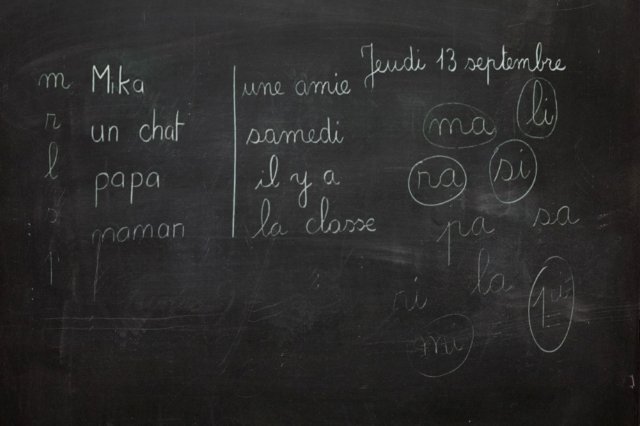 Jeudi 13 septembre
m
r
l
s
p
Mika
un chat
papa
maman
une amie
samedi
il y a
la classe
ma li
ra si
pa sa
ri la
mi